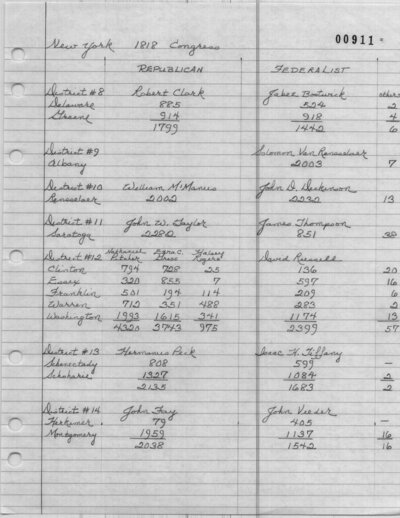 00911
New York 1818 Congress
REPUBLICAN FEDERALIST
District #8 Robert Clark Jabez Bostwick others
Delaware 885 524 2
Greene 914 918 4
1799 1442 6
District #9 Solomon Van Rensselaer
Albany 2003 7
District #10 William McManus John D. Dickinson
Rensselaer 2002 2232 13
District #11 John W. Taylor James Thompson
Saratoga 2280 851 38
District #12 Nathaniel Pitcher Ezra C. Gross Halsey Rogers David Russell
Clinton 794 728 25 136 20
Essex 320 855 7 597 16
Franklin 501 194 114 209 6
Warren 712 351 488 283 2
Washington 1993 1615 341 1174 13
4320 3743 975 2399 57
District #13 Hermanus Peek Isaac H. Tiffany
Schenectady 808 599 —
Schoharie 1327 1084 2
2135 1683 2
District #14 John Fay John Veeder
Herkimer 79 405 —
Montgomery 1959 1137 16
2038 1542 16